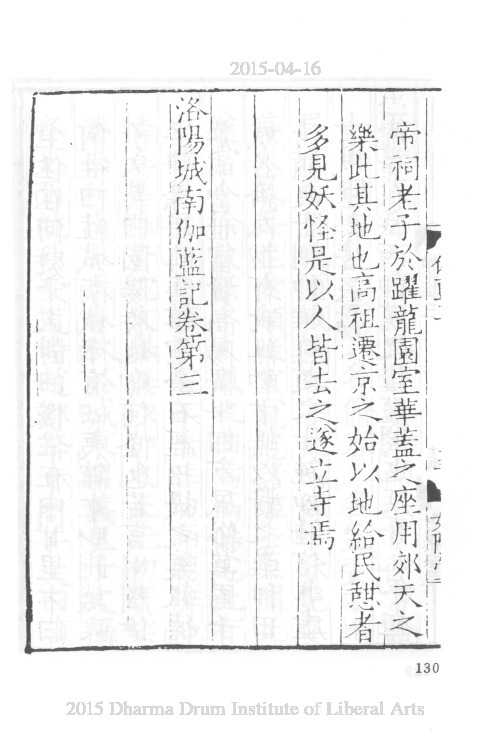 2015-04-16
帝祠老子於躍龍園室華蓋之座用郊天之
樂此其地也高祖遷京之始以地給民憇者
多見妖怪是以人皆去之遂立寺焉
洛陽城南伽藍記卷第三
130
2015 Dharma Drum Institute of Liberal Arts